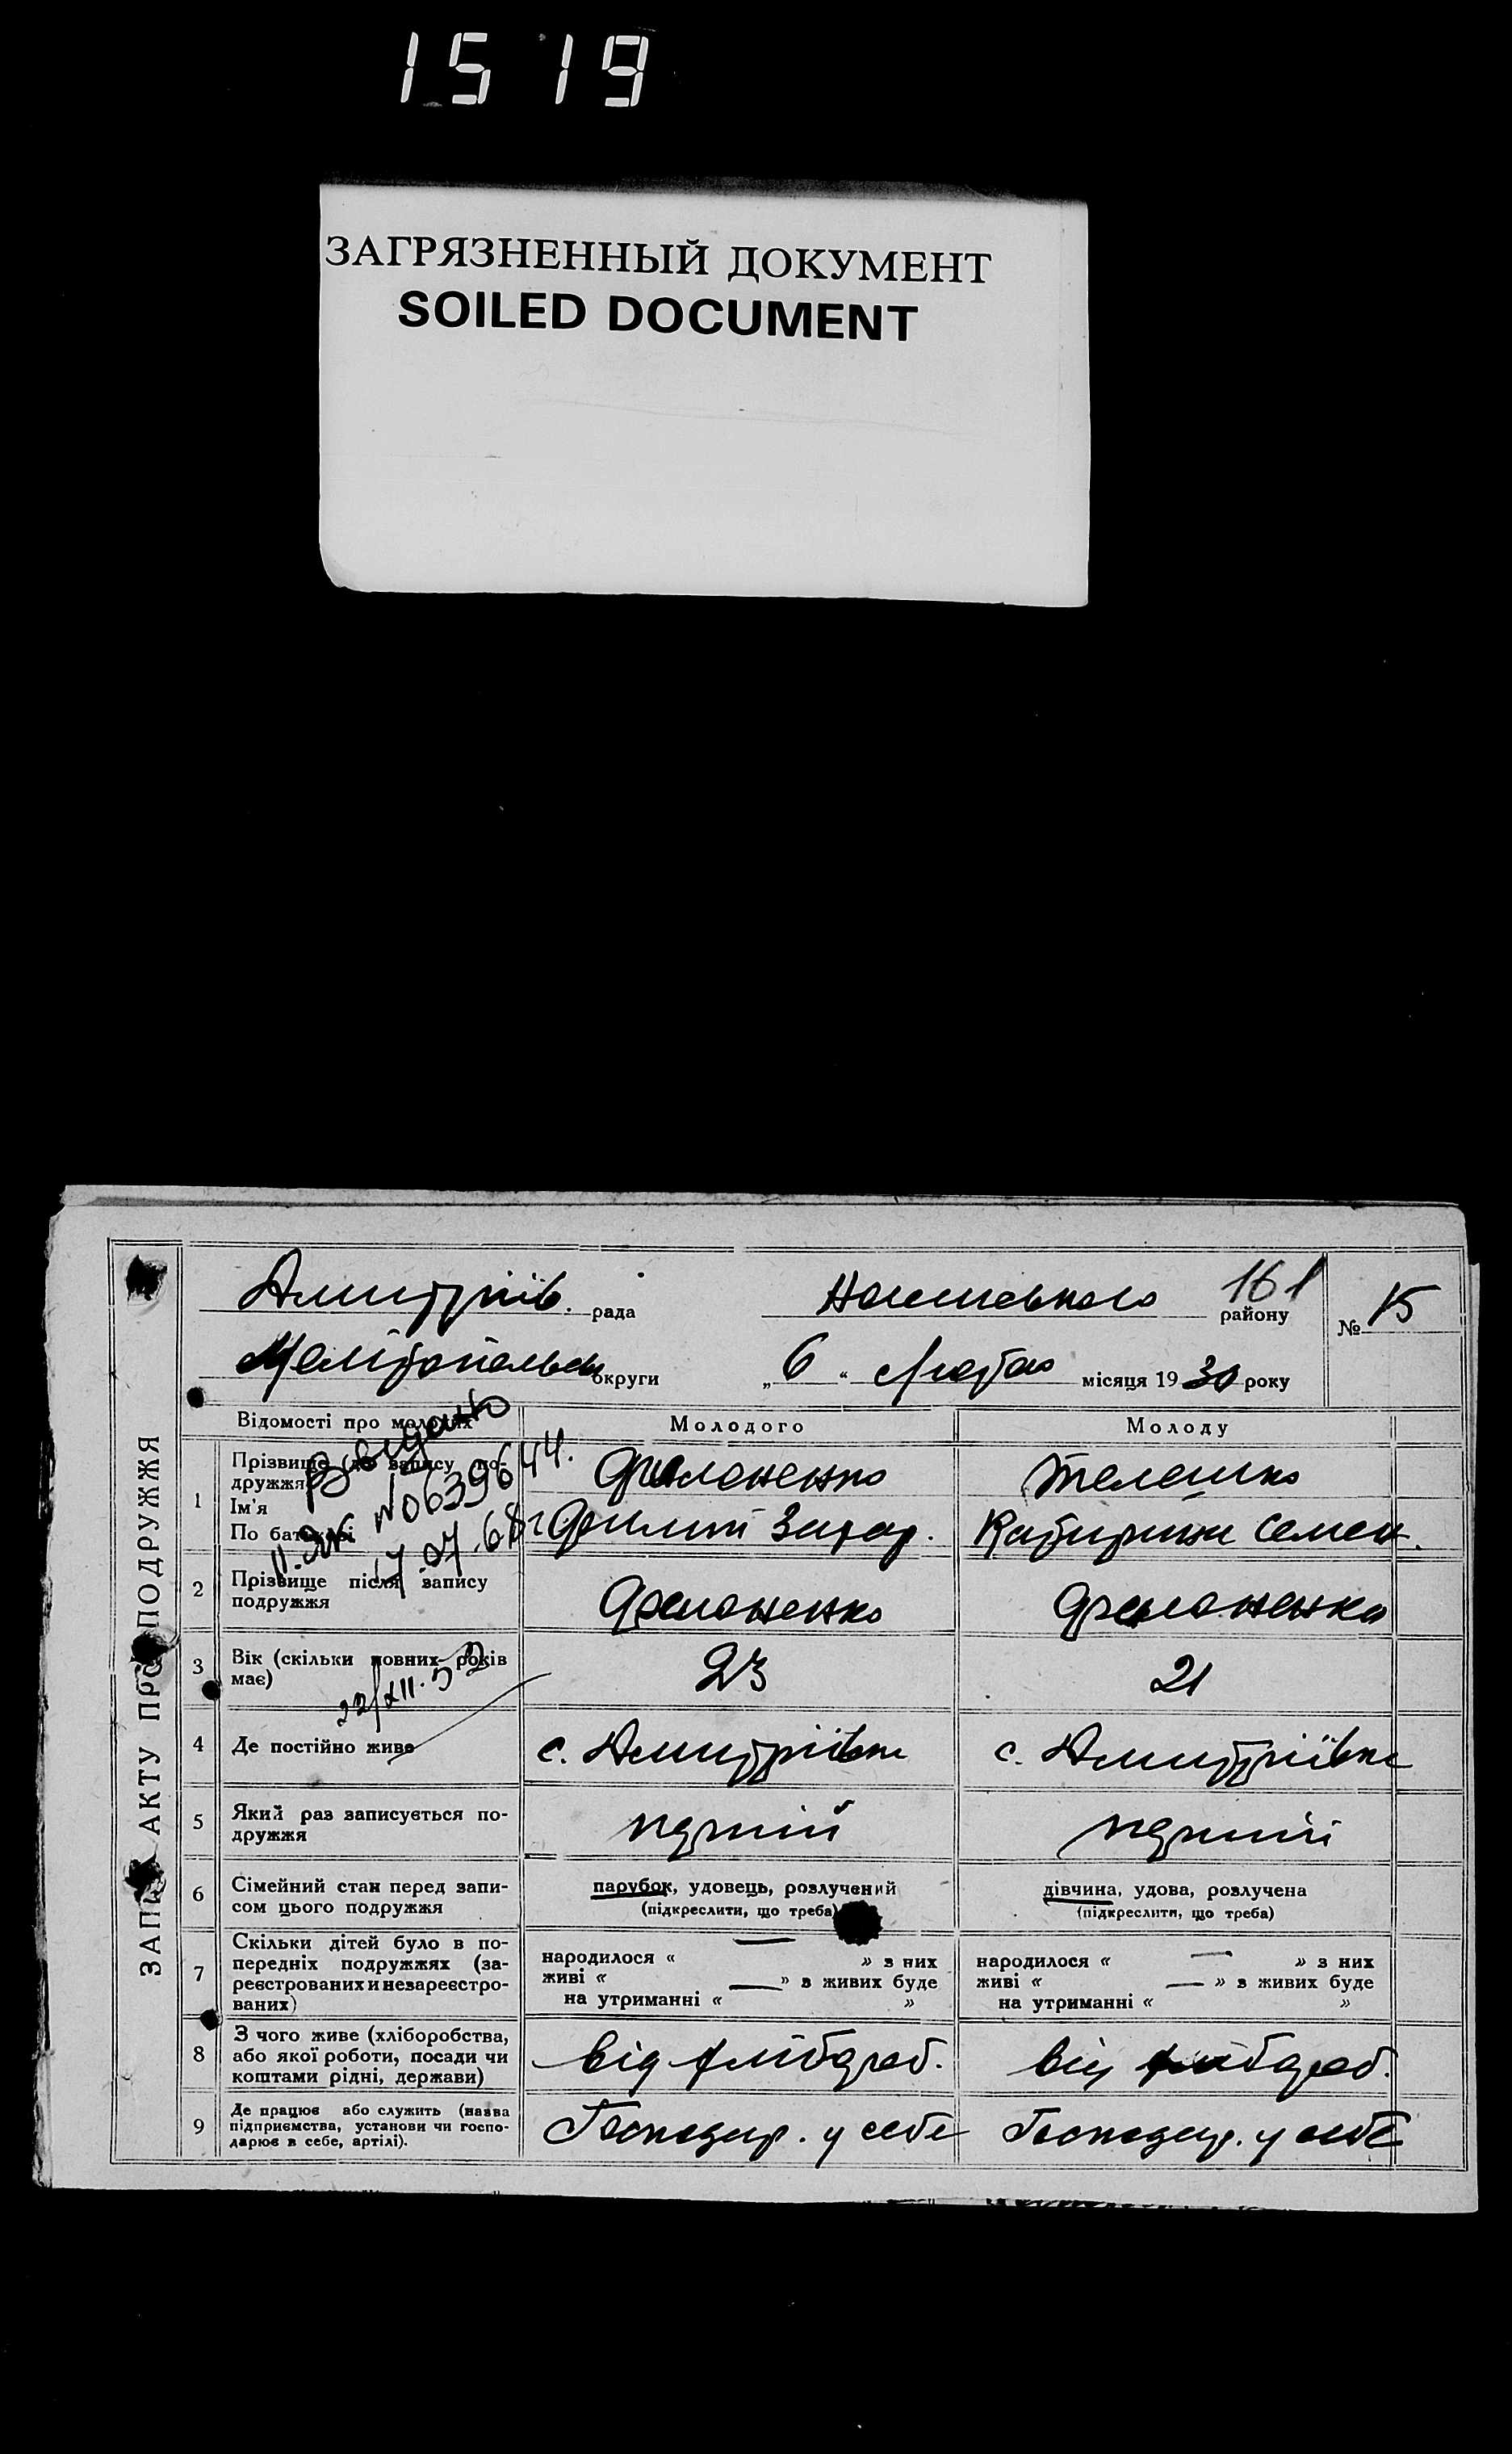 1519
ЗАГРЯЗНЕННЫЙ ДОКУМЕНТ
SOILED DOCUMENT
ЗАПИС АКТУ ПРО ПОДРУЖЖЯ
Дмитріїв. рада району 161 № 15
округи „6“ Лютого місяця 1930 року
Відомості про молодих Молодого Молоду
1 Прізвище (до запису подружжя)
Ім'я
По батькові
Телешко
Филип Захар. Катерина Семен.
№ 0639644.
17.07.68г
2 Прізвище після запису
подружжя
3 Вік (скільки повних років
має) 23 21
22/XII.52
4 Де постійно живе с. Дмитріївка с. Дмитріївка
5 Який раз записується по-
дружжя перший перший
6 Сімейний стан перед запи-
сом цього подружжя
парубок, удовець, розлучений дівчина, удова, розлучена
(підкреслити, що треба) (підкреслити, що треба)
7 Скільки дітей було в по-
передніх подружжях (за-
реєстрованих и незареєстро-
ваних)
народилося « — » з них народилося « — » з них
живі « — » з живих буде живі « — » з живих буде
на утриманні « » на утриманні « »
8 З чого живе (хліборобства,
або якої роботи, посади чи
коштами рідні, держави)
від хлібороб. від хлібороб.
9 Де працює або служить (назва
підприємства, установи чи госпо-
дарює в себе, артілі).
Господар. у себе Господар. у себе